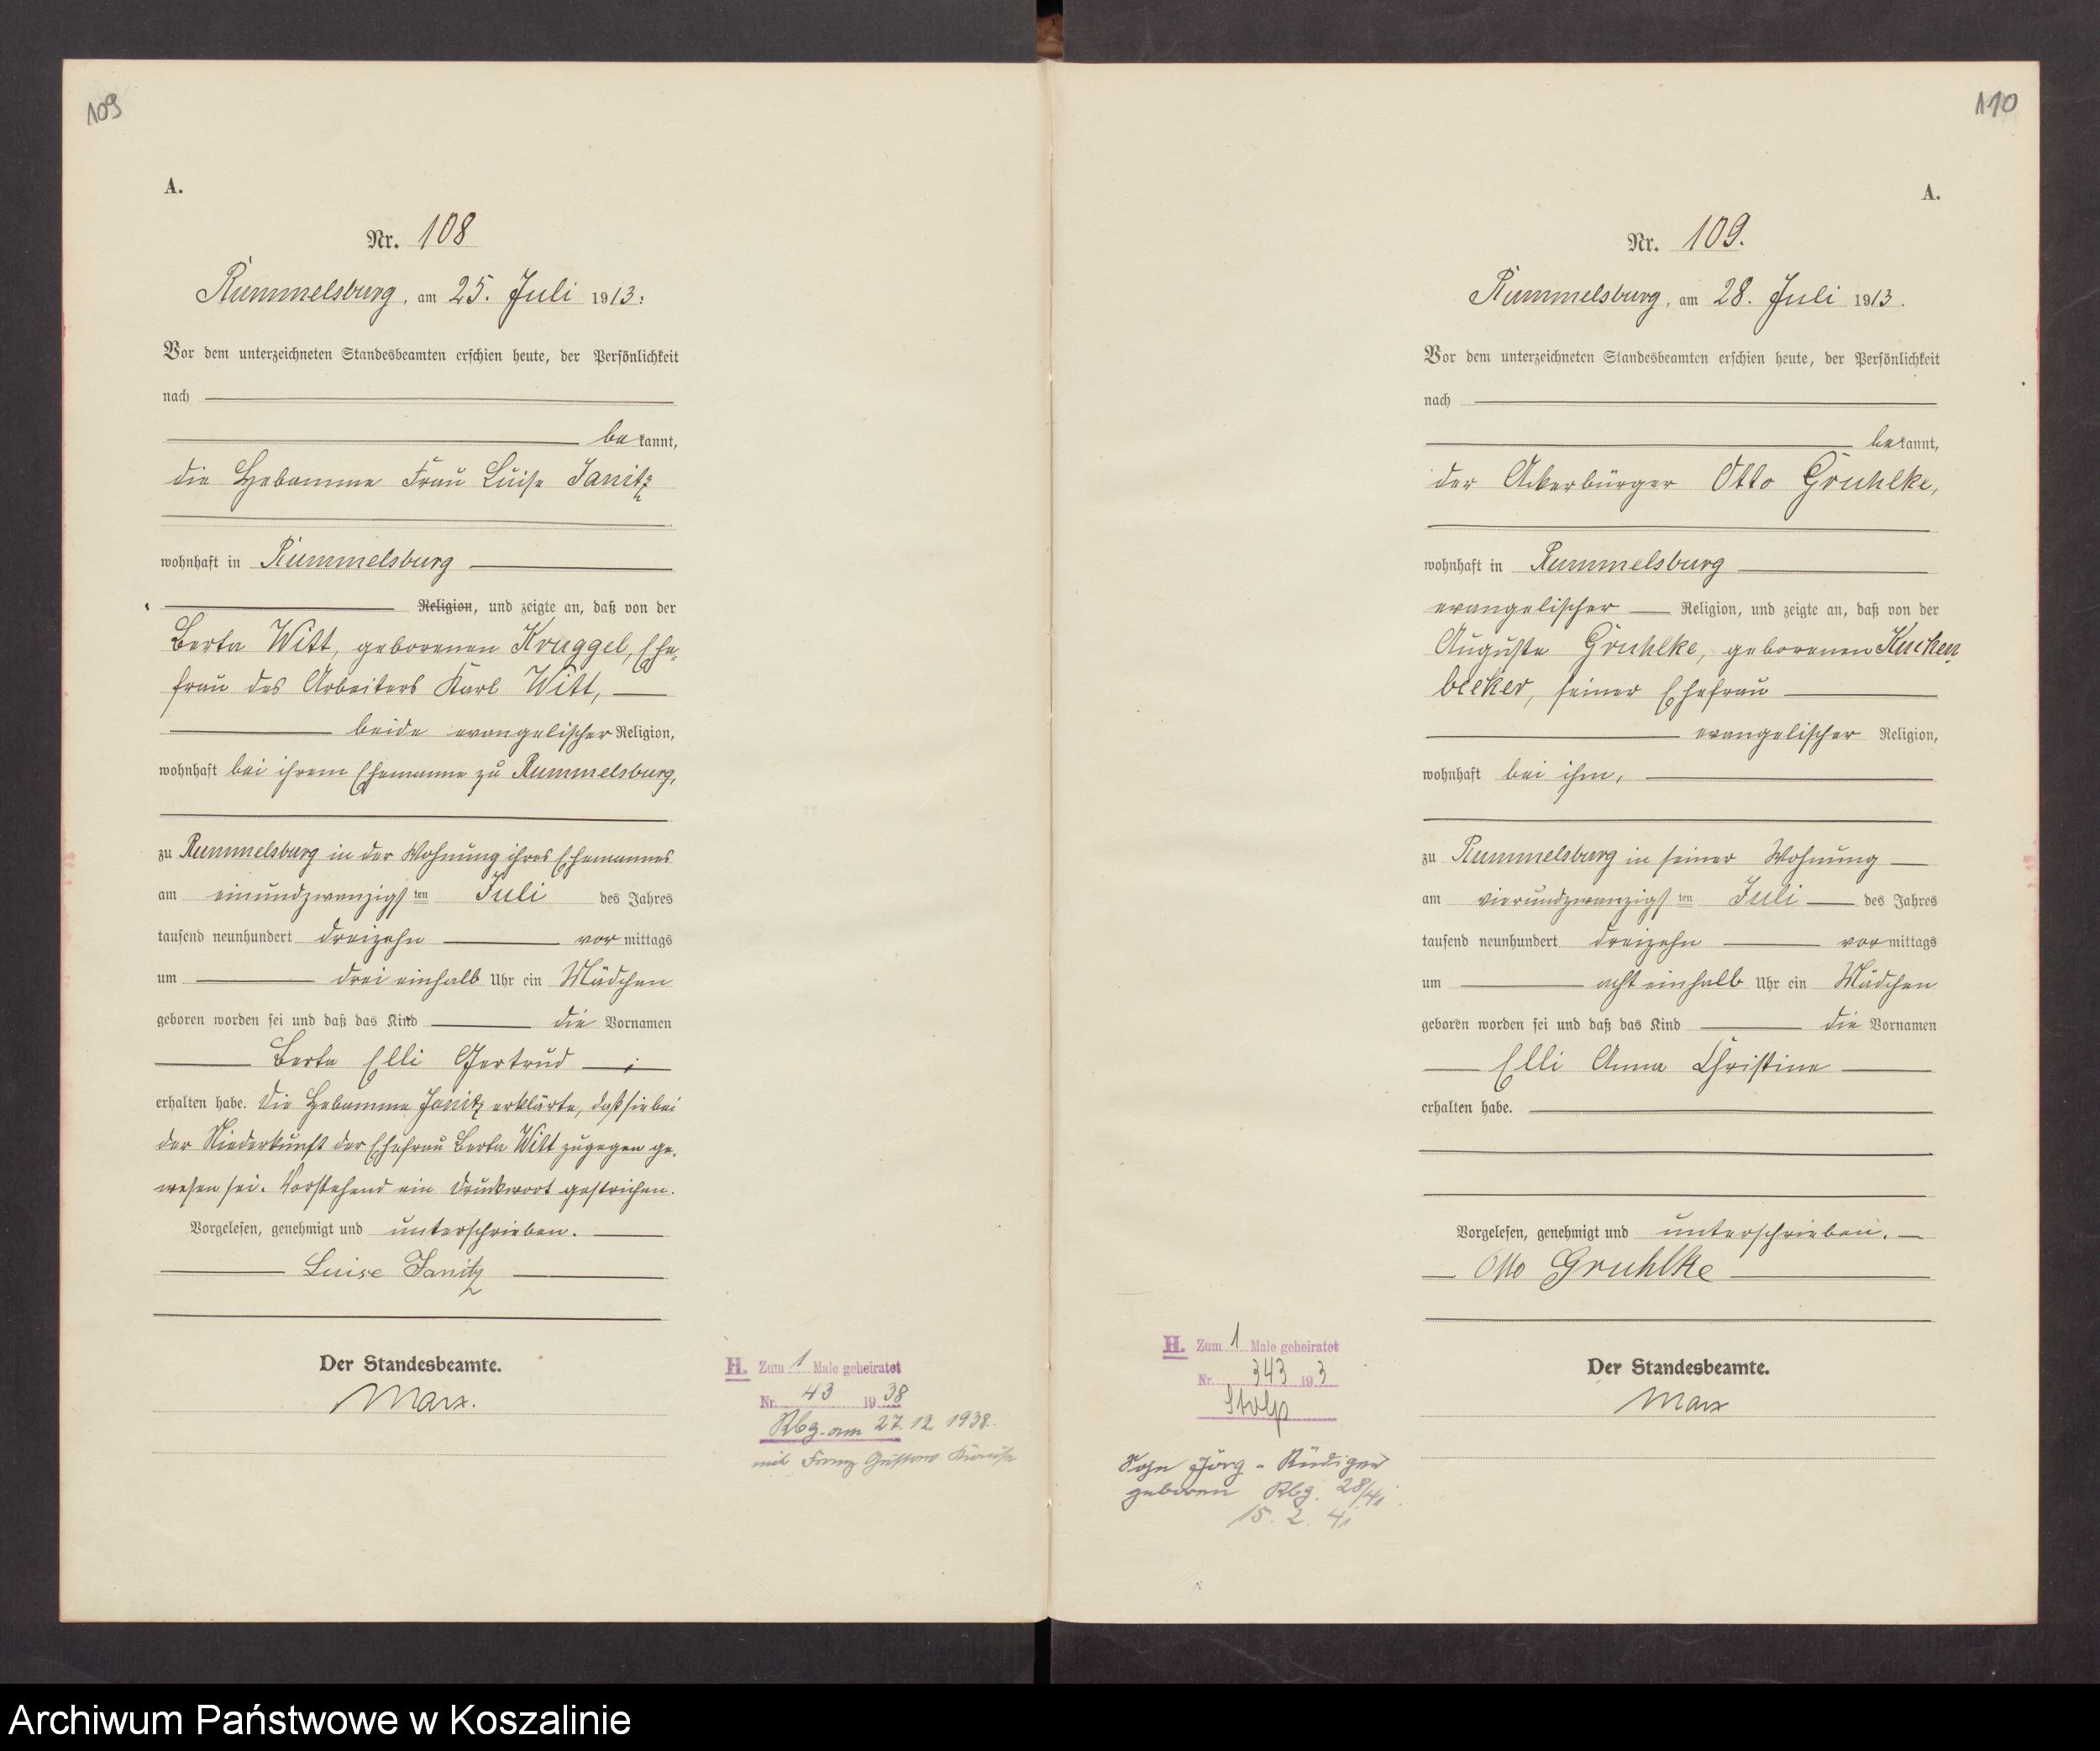 109
A.
Nr. 108
Rummelsburg, am 25. Juli 1913:
Vor dem unterzeichneten Standesbeamten erschien heute, der Persönlichkeit
nach
bekannt,
die Hebamme Frau Luise Janitz
wohnhaft in Rummelsburg
Religion, und zeigte an, daß von der
Berta Witt, geborenen Kruggel, Ehe-
frau des Arbeiters Karl Witt,
beide evangelischer Religion,
wohnhaft bei ihrem Ehemanne zu Rummelsburg,
zu Rummelsburg in der Wohnung ihres Ehemannes
am einundzwanzigsten Juli des Jahres
tausend neunhundert dreizehn vormittags
um drei einhalb Uhr ein Mädchen
geboren worden sei und daß das Kind die Vornamen
Berta Elli Gertrud ;
erhalten habe. Die Hebamme Janitz erklärte, daß sie bei
der Niederkunft der Ehefrau Berta Witt zugegen ge-
wesen sei. Vorstehend ein Druckwort gestrichen.
Vorgelesen, genehmigt und unterschrieben.
Luise Janitz
Der Standesbeamte.
Marx.
H. Zum 1 Male geheiratet
Nr. 43 1938
Rbg. am 27.12.1938.
mit Franz Gustav Krause
110
A.
Nr. 109.
Rummelsburg, am 28. Juli 1913.
Vor dem unterzeichneten Standesbeamten erschien heute, der Persönlichkeit
nach
bekannt,
der Ackerbürger Otto Gruhlke,
wohnhaft in Rummelsburg
evangelischer Religion, und zeigte an, daß von der
Auguste Gruhlke, geborenen Kucken-
becker, seiner Ehefrau
evangelischer Religion,
wohnhaft bei ihm,
zu Rummelsburg in seiner Wohnung
am vierundzwanzigsten Juli des Jahres
tausend neunhundert dreizehn vormittags
um acht einhalb Uhr ein Mädchen
geboren worden sei und daß das Kind die Vornamen
Elli Anna Christine
erhalten habe.
Vorgelesen, genehmigt und unterschrieben.
Otto Gruhlke
Der Standesbeamte.
Marx
H. Zum 1 Male geheiratet
Nr. 343 193
Stolp
Sohn Jörg-Rüdiger
geboren Rbg. 28/41.
15. 2. 41
Archiwum Państwowe w Koszalinie